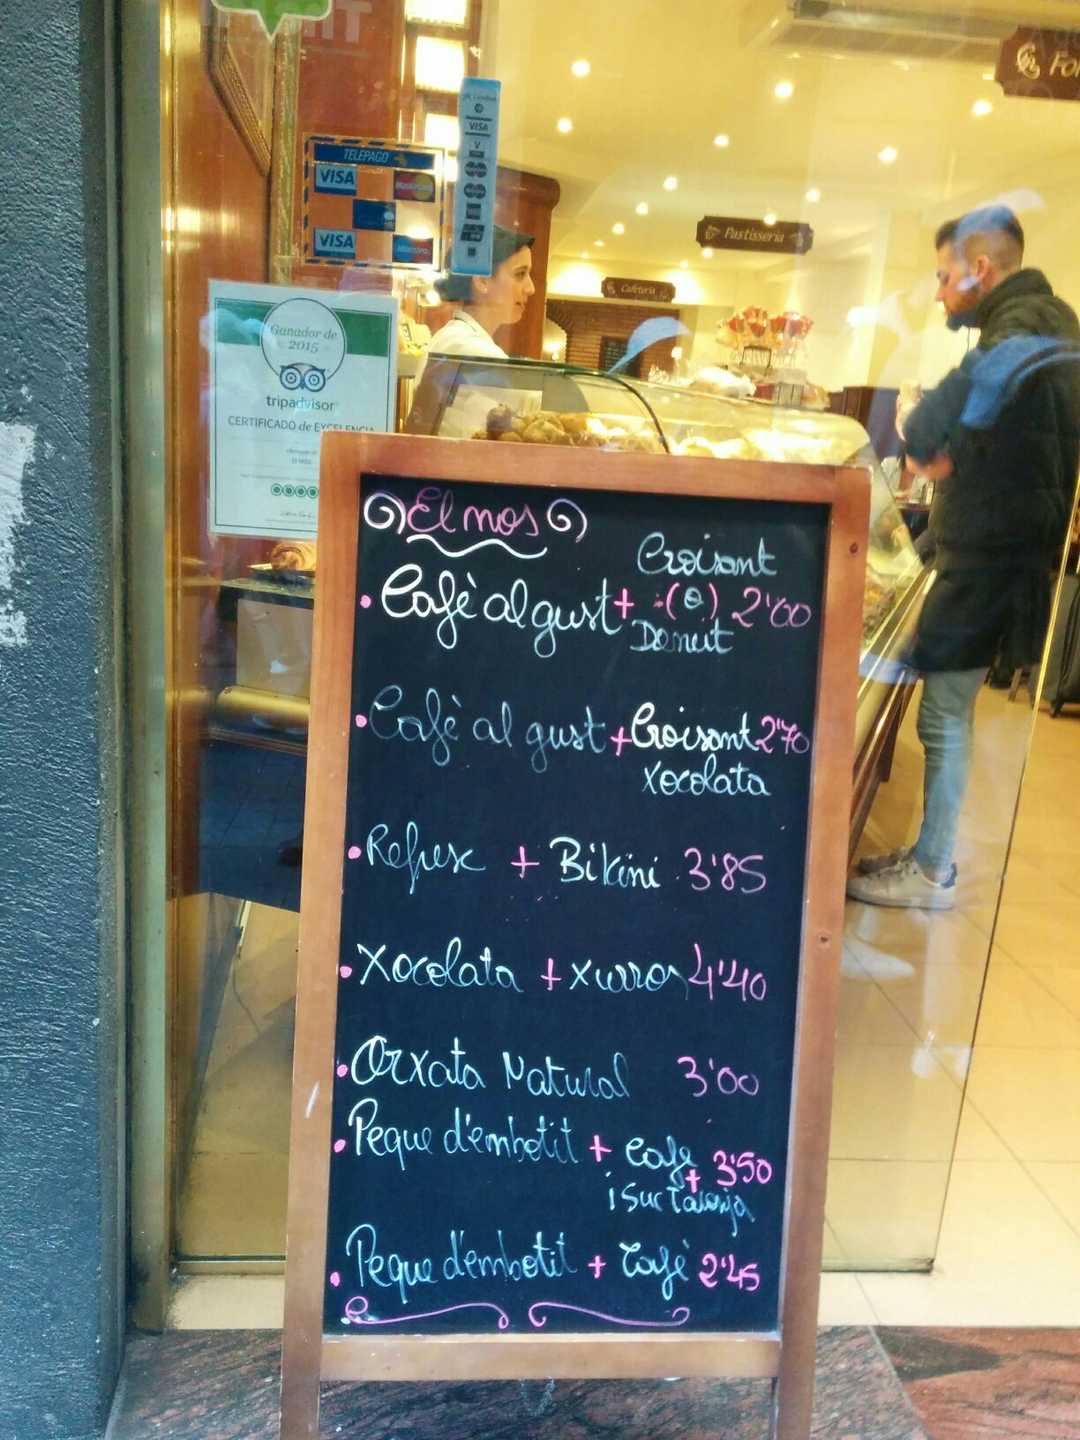 TELEPAGO
VISA
MasterCard
VISA
Maestro
VISA
Pastisseria
Cafeteria
Ganador de
2015
tripadvisor
CERTIFICADO de EXCELENCIA
El nos
Croisant
• Cafè al gust + (o) 2'00
Donut
• Cafè al gust + Croisant 2'70
xocolata
• Refresc + Bikini 3'85
• Xocolata + xurros 4'40
• Orxata Natural 3'00
• Peque d'embotit + Cafe + 3'50
i Suc Taronja
• Peque d'embotit + Cafè 2'45